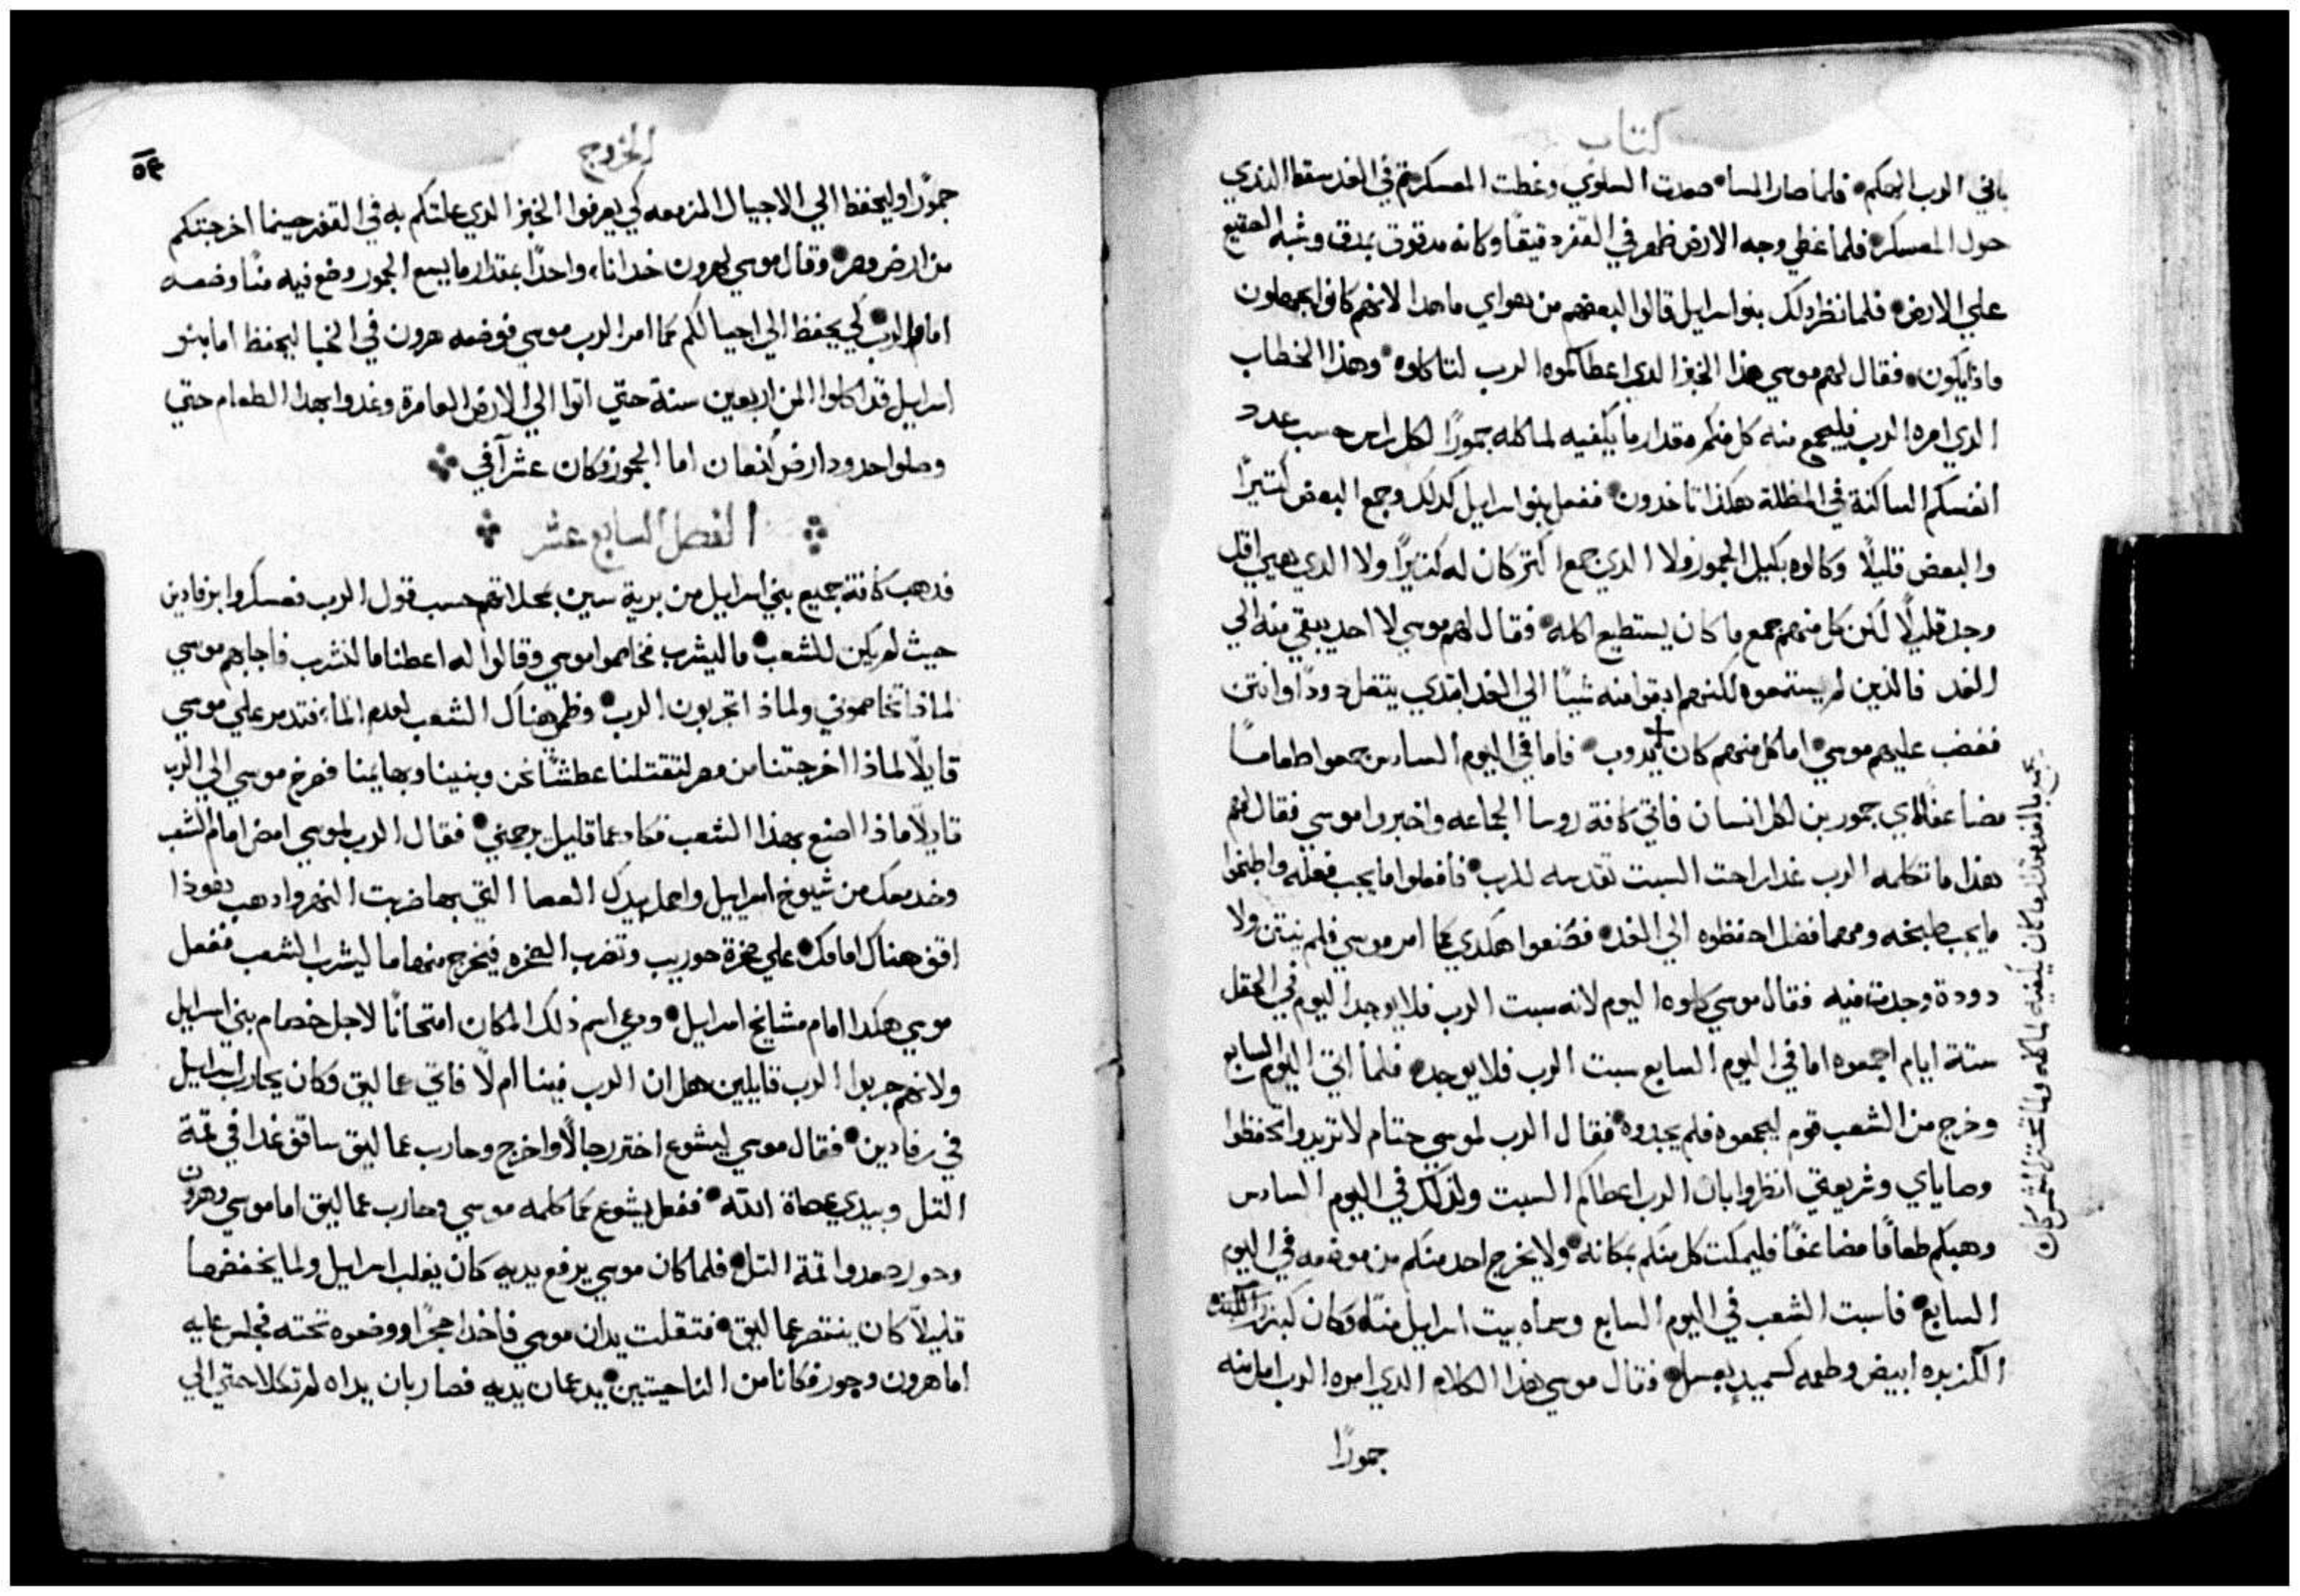 كتاب
باني الرب الهكم فلما صار المسا صعدت السلوي وغطت المعسكر ثم في الغد سقط الندي
حول المعسكر فلما غطي وجه الارض ظهر في القفر دقيقًا وكانه مدقوق بمدق وشبه الصقيع
علي الارض فلما نظر دلك بنو اسرايل قالوا لبعضهم من هواي ما هدا لانهم كانوا يجهلون
مادا يكون فقال لهم موسي هذا الخبز الدي اعطاكموه الرب لتاكلوه وهذا الخطاب
الدي امره الرب فليجمع منه كل منكم مقدار ما يكفيه لماكله جمورًا لكل راس حسب عدد
انفسكم الساكنة في المظلة هكذا تاخدون ففعل بنو اسرايل كدلك وجمع البعض كتيرًا
والبعض قليلًا وكالوه بكيل الجمور ولا الدي جمع اكتر كان له كتيرًا ولا الدي هيي اقل
وجد قليلًا لكن كل منهم جمع ما كان يستطيع اكله فقال لهم موسي لا احد يبقي منه الي
الغد فالذين لم يستمعوه لكنهم ابقوا منه شيًا الي الغد ابتدي يتغل دودًا وانتن
فغضب عليهم موسي اما كل منهم كان يدوب فاما في اليوم السادس جمعوا طعامًا
مضاعفًا اي جمورين لكل انسان فاتي كافة روسا الجماعه واخبروا موسي فقال لهم
هذا ما تكلمه الرب غدا راحت السبت تقدسه للرب فافعلوا ما يجب فعله واطبخوا
ما يجب طبخه ومهما فضل احفظوه الي الغد فصنعوا هكدي كما امر موسي فلم ينتن ولا
دودة وجدت فيه فقال موسي كلوه اليوم لانه سبت الرب فلا يوجد اليوم في الحقل
ستة ايام اجمعوه اما في اليوم السابع سبت الرب فلا يوجد فلما اتي اليوم السابع
وخرج من الشعب قوم ليجمعوه فلم يجدوه فقال الرب لموسي حتام لا تريدوا تحفظوا
وصاياي وشريعتي انظروا بان الرب اعطاكم السبت ولذلك في اليوم السادس
وهبكم طعامًا مضاعفًا فليمكت كل منكم بمكانه ولا يخرج احد منكم من موضعه في اليوم
السابع فاسبت الشعب في اليوم السابع وسماه بيت اسرايل منّا وكان كبزر
الكزبره ابيض وطعمه كسميد بعسل فقال موسي هذا الكلام الدي امره الرب املا منه
جمورًا
يجمع بالغد مقدار ما كان يكفيه لماكله ولما تحتر الشمس كان
الخروج
٥٤
جمورًا وليحفظ الي الاجيال المزمعه كي يعرفوا الخبز الدي علتكم به في القفر حينما اخرجتكم
من ارض مصر وقال موسي لهرون خد اناء واحدًا بمقدار ما يسع الجمور وضع فيه منًا وضعه
امام الرب لكي يحفظ الي اجيالكم كما امر الرب موسي فوضعه هرون في الخبا ليحفظ اما بنو
اسرايل قد اكلوا المن اربعين سنة حتي اتوا الي الارض العامرة وغدوا بهدا الطعام حتي
وصلوا حدود ارض كنعان اما الجمور فكان عشر آفي
الفصل السابع عشر
فدهب كافة جميع بني اسرايل من برية سين بمحلاتهم حسب قول الرب فعسكروا برفادين
حيث لم يكن للشعب ما ليشرب فخاصموا موسي وقالوا له اعطنا ما لنشرب فاجابهم موسي
لماذا تخاصموني ولماذا تجربون الرب وظمي هناك الشعب لعدم الماء فتدمر علي موسي
قايلًا لماذا اخرجتنا من مصر لتقتلنا عطشًا نحن وبنينا وبهايمنا فصرخ موسي الي الرب
قايلًا ماذا اصنع بهذا الشعب فكاد عما قليل يرجمني فقال الرب لموسي امض امام الشعب
وخد معك من شيوخ اسرايل واحمل بيدك العصا التي بها ضربت النهر وادهب هوذا
اقف هناك امامك علي صخرة حوريب وتضرب الصخره فيخرج منها ما ليشرب الشعب ففعل
موسي هكدا امام مشايخ اسرايل ودعي اسم ذلك المكان امتحانًا لاجل خصام بني اسرايل
ولانهم جربوا الرب قايلين هل ان الرب فينا ام لا فاتي عماليق وكان يحارب اسرايل
في رفادين فقال موسي ليشوع اختر رجالًا واخرج وحارب عماليق ساقف غدا في قمة
التل وبيدي عصاة الله ففعل يشوع كما كلمه موسي وحارب عماليق اما موسي وهرون
وحور صعدوا قمة التل فلما كان موسي يرفع يديه كان يغلب اسرايل ولما يخفضها
قليلًا كان ينتصر عماليق فتقلت يدان موسي فاخدا حجرًا ووضعوه تحته فجلس عليه
اما هرون وحور فكانا من الناحيتين يدعمان يديه فصار بان يداه لم تكلا حتي الي